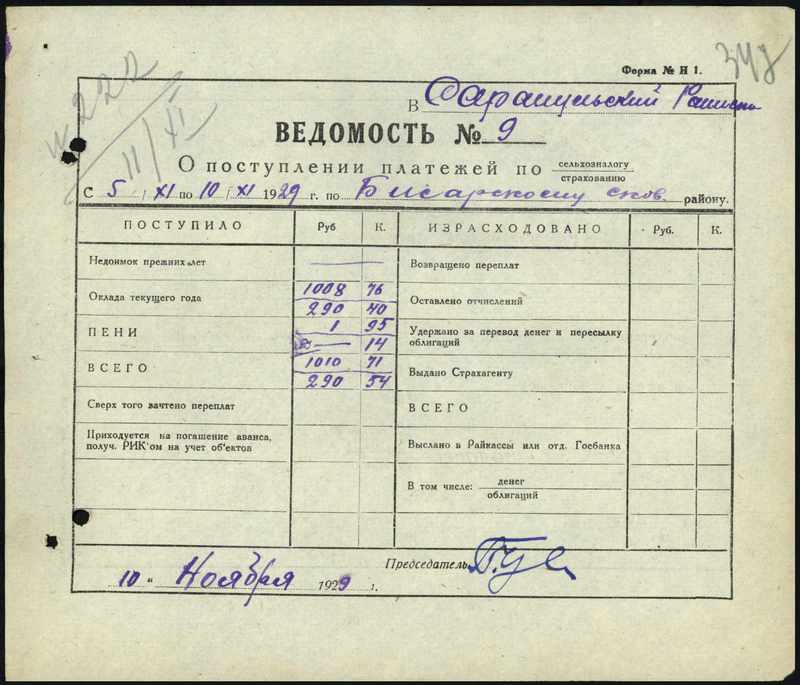 Форма № Н 1.
347
№ 222
11/XI
В Сарапульский
ВЕДОМОСТЬ № 9
О поступлении платежей по сельхозналогу
страхованию
С 5/XI по 10/XI 1929 г. по Бисарскому району.
ПОСТУПИЛО Руб К. ИЗРАСХОДОВАНО Руб. К.
Недоимок прежних лет — Возвращено переплат
Оклада текущего года 1008 76 Оставлено отчислений
290 40
ПЕНИ 1 95 Удержано за перевод денег и пересылку
— 14 облигаций
ВСЕГО 1010 71 Выдано Страхагенту
290 54
Сверх того зачтено переплат ВСЕГО
Приходуется на погашение аванса,
получ. РИК'ом на учет об'ектов Выслано в Райкассы или отд. Госбанка
В том числе: денег
облигаций
Председатель
10 " Ноября 1929 г.